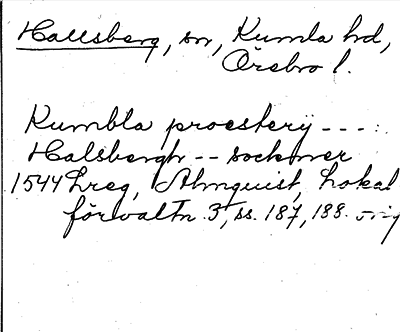 Hallsberg, sn, Kumla hd,
Örebro l.
Kumbla proesterij ----:
Halsbergh -- sockner
1544 Lreg, Almquist, Lokal
förvaltn 3, ss. 187, 188.